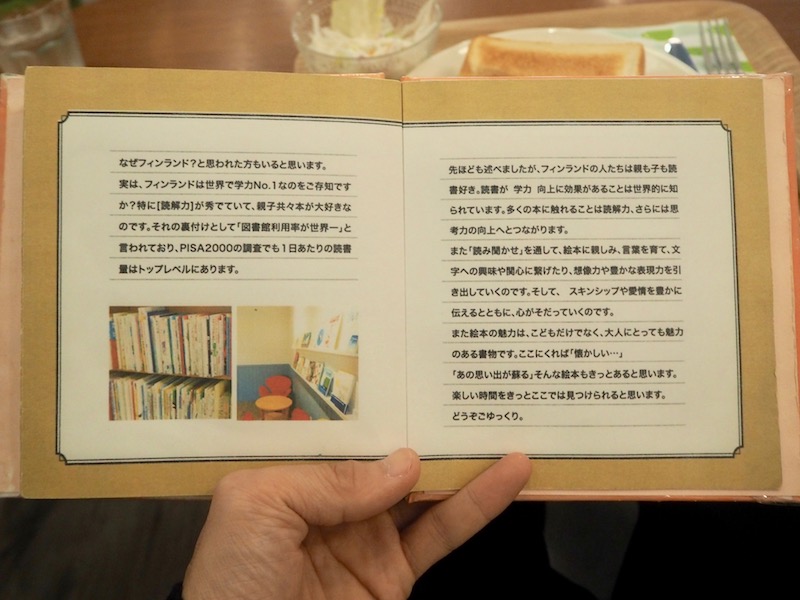 なぜフィンランド?と思われた方もいると思います。
実は、フィンランドは世界で学力No.1なのをご存知です
か?特に[読解力]が秀でていて、親子共々本が大好きな
のです。それの裏付けとして「図書館利用率が世界一」と
言われており、PISA2000の調査でも1日あたりの読書
量はトップレベルにあります。
先ほども述べましたが、フィンランドの人たちは親も子も読
書好き。読書が 学力 向上に効果があることは世界的に知
られています。多くの本に触れることは読解力、さらには思
考力の向上へとつながります。
また「読み聞かせ」を通して、絵本に親しみ、言葉を育て、文
字への興味や関心に繋げたり、想像力や豊かな表現力を引
き出していくのです。そして、 スキンシップや愛情を豊かに
伝えるとともに、心がそだっていくのです。
また絵本の魅力は、こどもだけでなく、大人にとっても魅力
のある書物です。ここにくれば「懐かしい…」
「あの思い出が蘇る」そんな絵本もきっとあると思います。
楽しい時間をきっとここでは見つけられると思います。
どうぞごゆっくり。